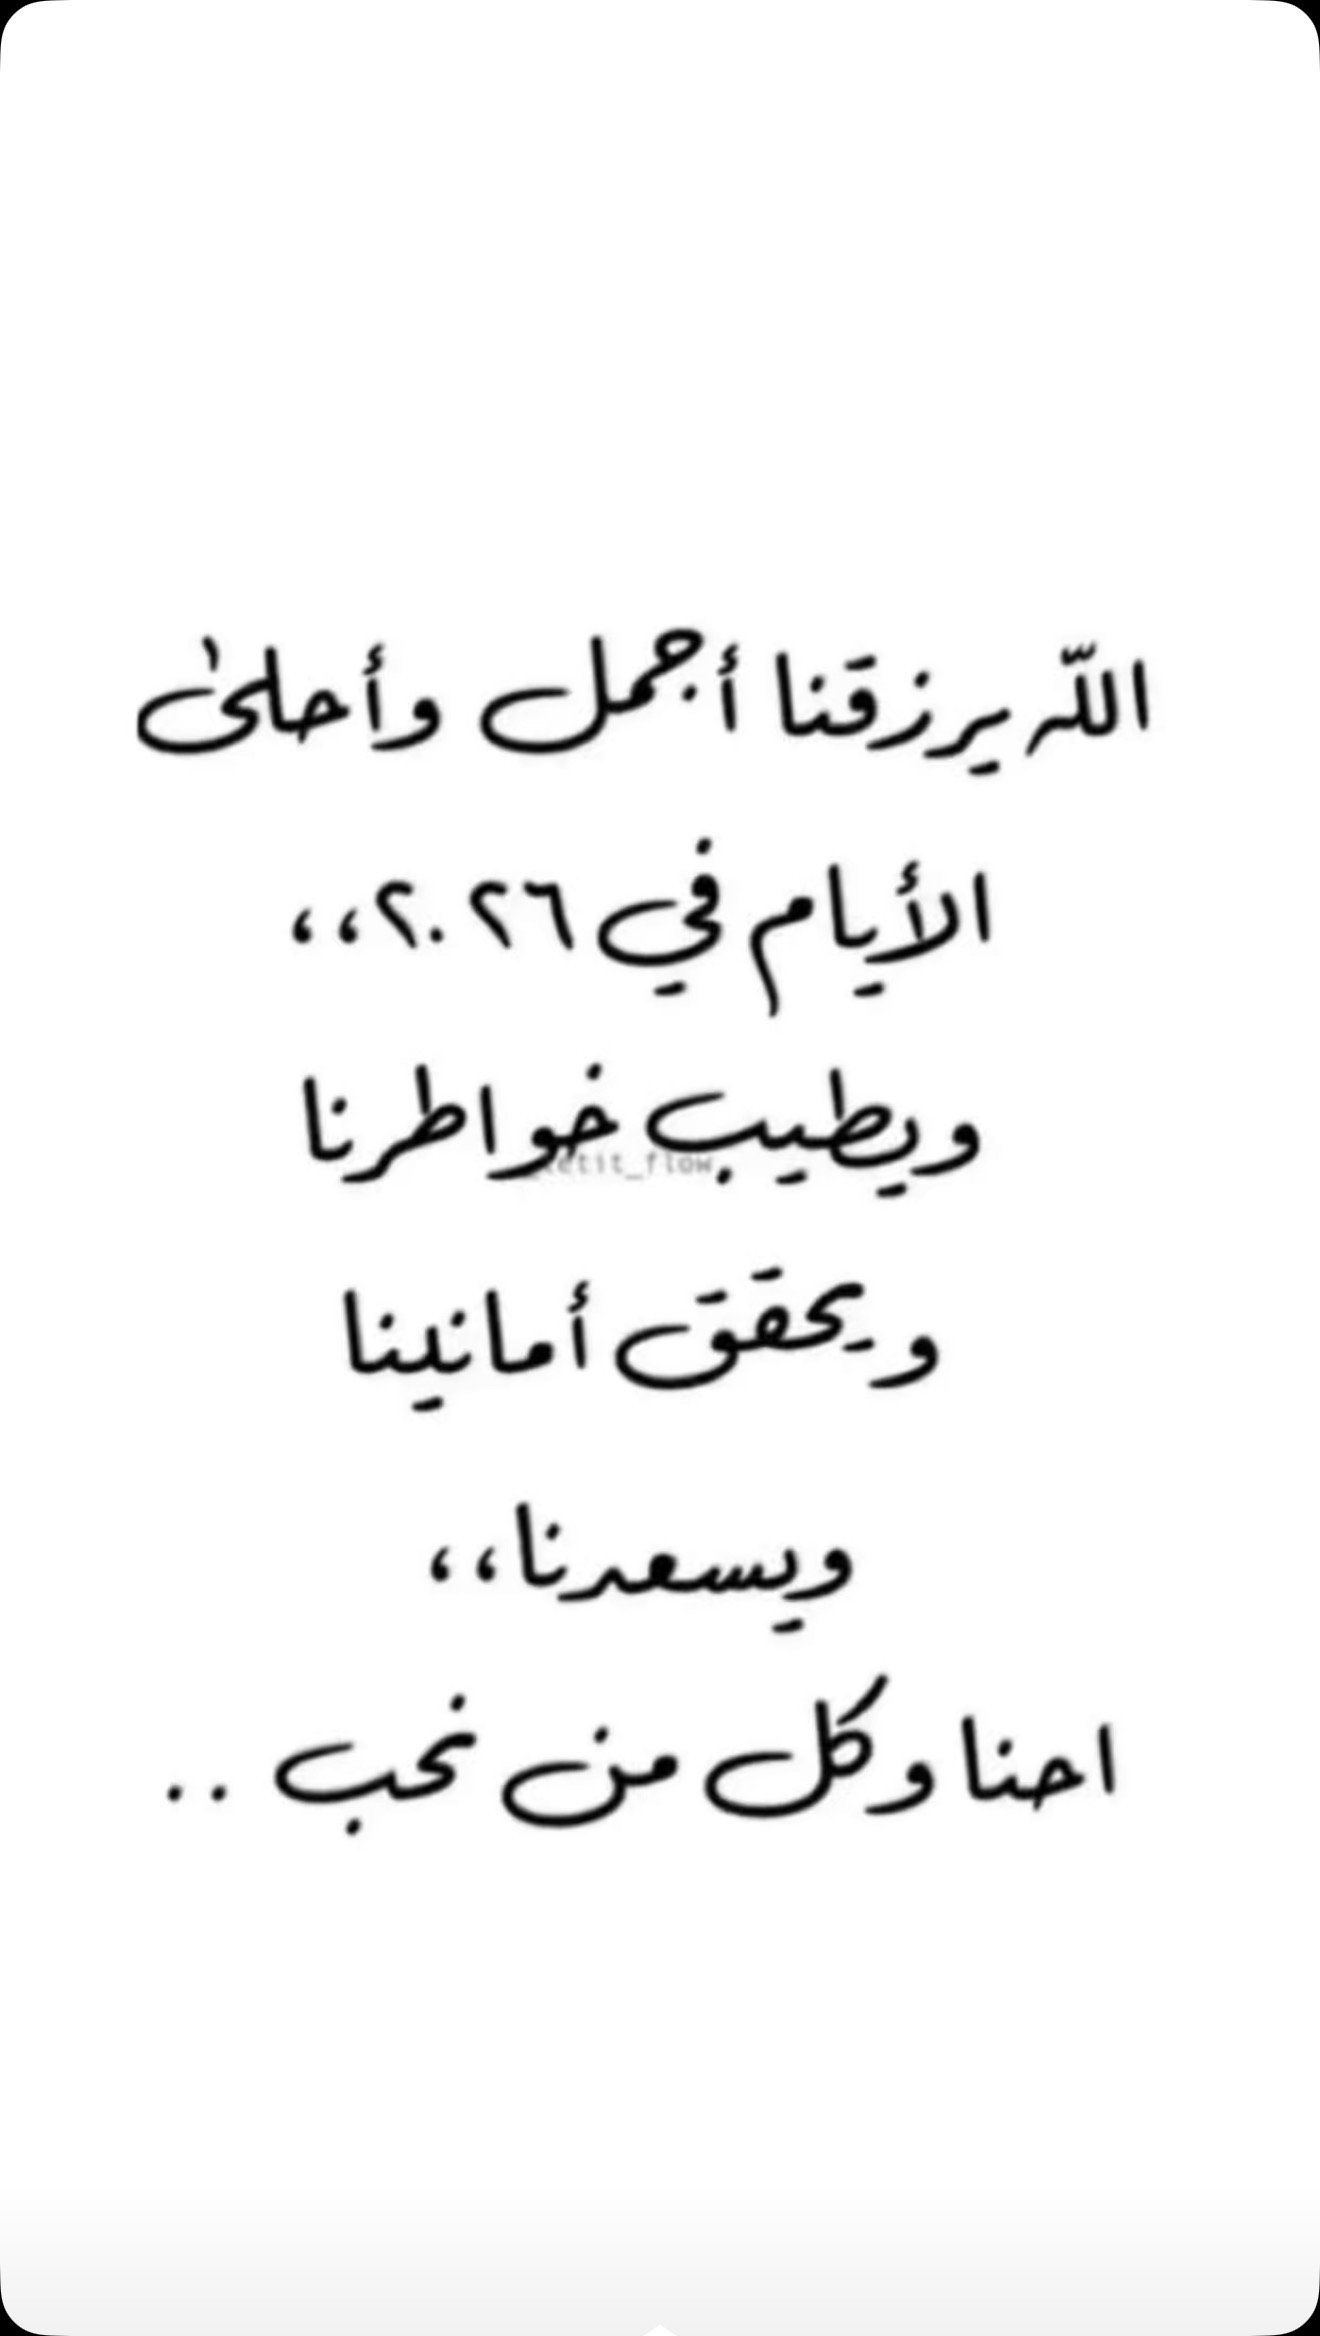 اللّه يرزقنا أجمل وأحلىٰ
الأيام في ٢٠٢٦،،
ويطيب خواطرنا
ويحقق أمانينا
ويسعدنا،،
احنا وكل من نحب ..